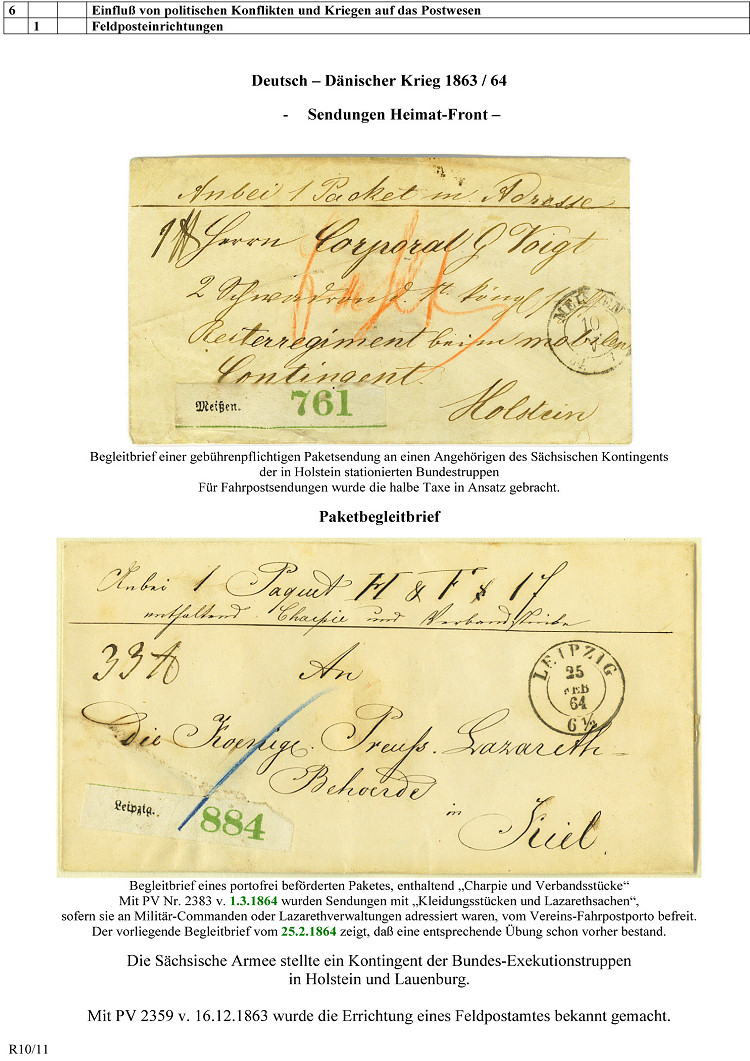 6 Einfluß von politischen Konflikten und Kriegen auf das Postwesen
1 Feldposteinrichtungen
Deutsch – Dänischer Krieg 1863 / 64
- Sendungen Heimat-Front –
Anbei 1 Packet m. Adresse
Herrn Corporal G Voigt
2 Schwadron d. 1st. königl
Reiterregiment beim mobilen
Contingent.
Holstein
10
Meißen. 761
Begleitbrief einer gebührenpflichtigen Paketsendung an einen Angehörigen des Sächsischen Kontingents
der in Holstein stationierten Bundestruppen
Für Fahrpostsendungen wurde die halbe Taxe in Ansatz gebracht.
Paketbegleitbrief
Anbei 1 Paquet H & F 17
enthaltend Charpie und Verbandstücke
33
An
LEIPZIG
25
FEB
64
6½
Die Koenigl. Preuss. Lazareth-
Behoerde
in
Kiel.
Leipzig. 884
Begleitbrief eines portofrei beförderten Paketes, enthaltend „Charpie und Verbandsstücke“
Mit PV Nr. 2383 v. 1.3.1864 wurden Sendungen mit „Kleidungsstücken und Lazarethsachen“,
sofern sie an Militär-Commanden oder Lazarethverwaltungen adressiert waren, vom Vereins-Fahrpostporto befreit.
Der vorliegende Begleitbrief vom 25.2.1864 zeigt, daß eine entsprechende Übung schon vorher bestand.
Die Sächsische Armee stellte ein Kontingent der Bundes-Exekutionstruppen
in Holstein und Lauenburg.
Mit PV 2359 v. 16.12.1863 wurde die Errichtung eines Feldpostamtes bekannt gemacht.
R10/11